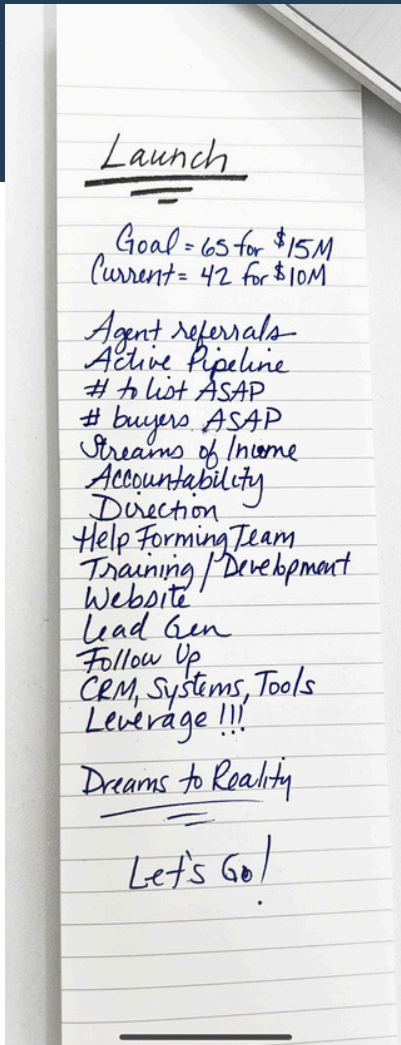 Launch
Goal = 65 for $15M
Current = 42 for $10M
Agent referrals
Active Pipeline
# to list ASAP
# buyers ASAP
Streams of Income
Accountability
Direction
Help Forming Team
Training / Development
Website
Lead Gen
Follow Up
CRM, Systems, Tools
Leverage !!!
Dreams to Reality
Let's Go!